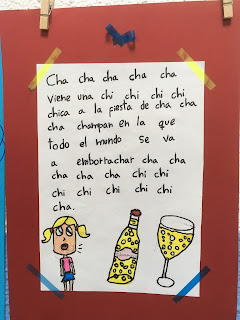 Cha cha cha cha cha
viene una chi chi chi chi
chica a la fiesta de cha cha
cha champan en la que
todo el mundo se va
a emborrachar cha cha
cha cha cha chi chi
chi chi chi chi chi
cha.